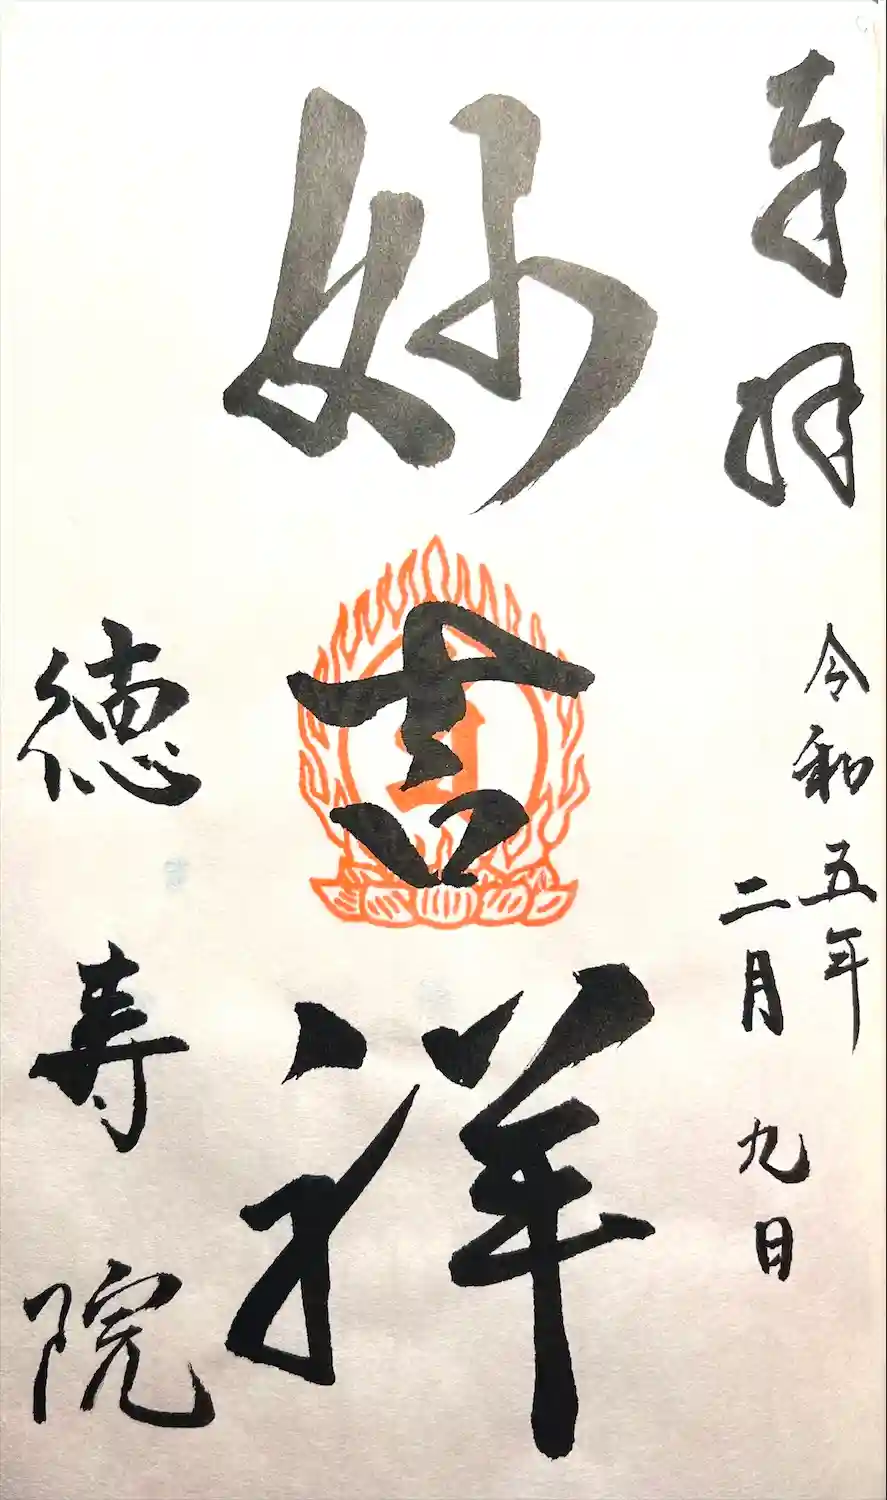 奉拝
令和五年
二月九日
妙吉祥
徳寿院